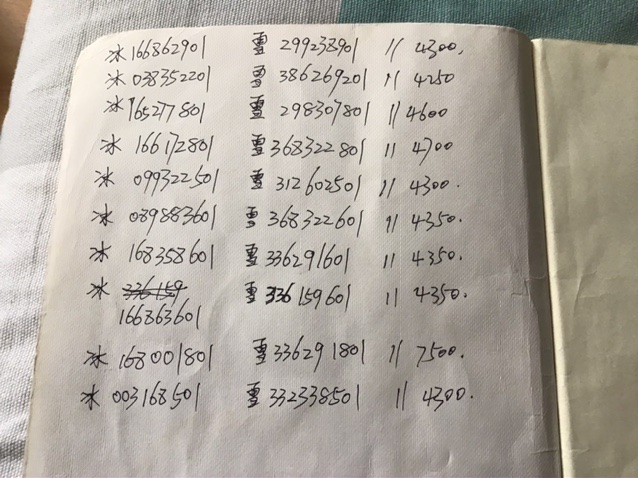 冰 166862901 雪 299238901 11 4300.
冰 038352201 雪 386269201 11 4250
冰 165277801 雪 298307801 11 4600
冰 166172801 雪 368322801 11 4700
冰 099322501 雪 312602501 11 4300.
冰 089883601 雪 368322601 11 4350.
冰 168358601 雪 336291601 11 4350.
冰 336159 雪 336159601 11 4350.
166863601
冰 168001801 雪 336291801 11 7500.
冰 003168501 雪 332338501 11 4300.